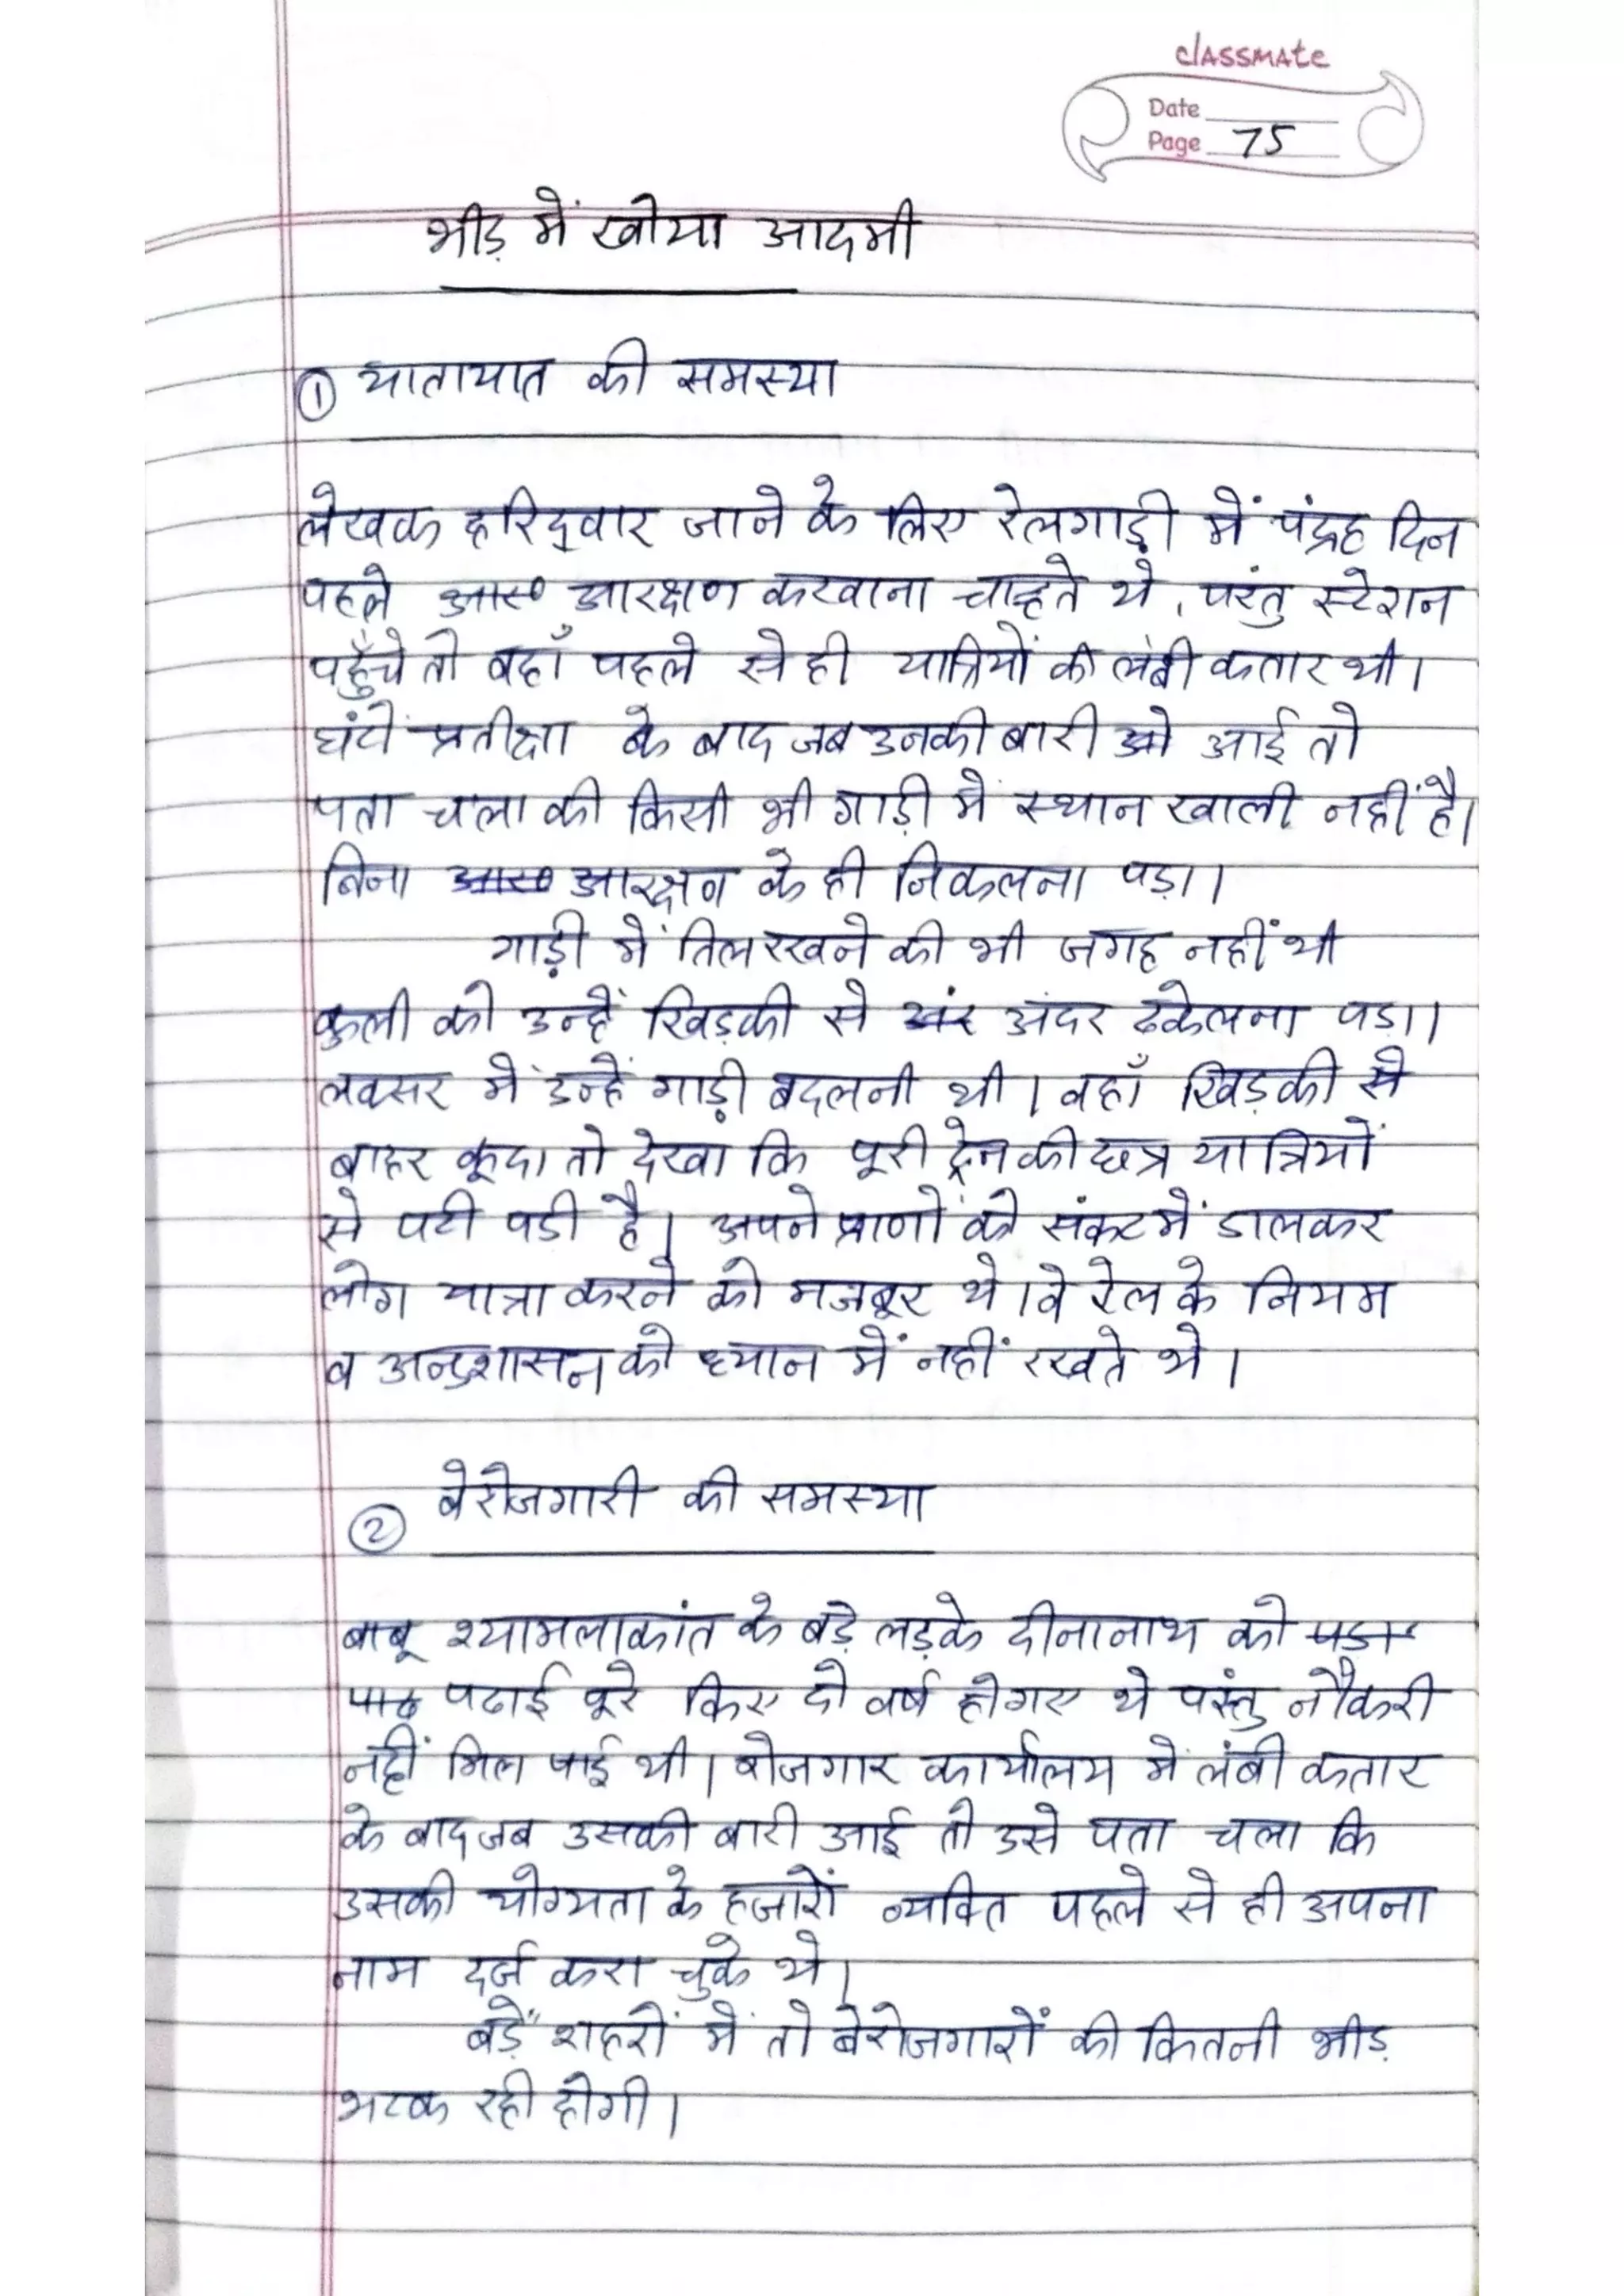 classmate
Date
Page 75
भीड़ में खोया आदमी
① यातायात की समस्या
लेखक हरिद्वार जाने के लिए रेलगाड़ी में पंद्रह दिन
पहले आरक्षण करवाना चाहते थे, परंतु स्टेशन
पहुँचे तो वहाँ पहले से ही यात्रियों की लंबी कतार थी।
घंटों प्रतीक्षा के बाद जब उनकी बारी आई तो
पता चला की किसी भी गाड़ी में स्थान खाली नहीं है।
बिना आरक्षण के ही निकलना पड़ा।
गाड़ी में तिल रखने की भी जगह नहीं थी
कुली को उन्हें खिड़की से अंदर ढकेलना पड़ा।
लक्सर में उन्हें गाड़ी बदलनी थी। वहाँ खिड़की से
बाहर कूदा तो देखा कि पूरी ट्रेन की छत्र यात्रियों
से पटी पडी है। अपने प्राणों को संकट में डालकर
लोग यात्रा करने को मजबूर थे। वे रेल के नियम
व अनुशासन को ध्यान में नहीं रखते थे।
② बेरोजगारी की समस्या
बाबू श्यामलाकांत के बड़े लड़के दीनानाथ को
पढाई पूरे किए दो वर्ष हो गए थे परंतु नौकरी
नहीं मिल पाई थी। रोजगार कार्यालय में लंबी कतार
के बाद जब उसकी बारी आई तो उसे पता चला कि
उसकी योग्यता के हजारों व्यक्ति पहले से ही अपना
नाम दर्ज करा चुके थे।
बड़े शहरों में तो बेरोजगारों की कितनी भीड़
भटक रही होगी।